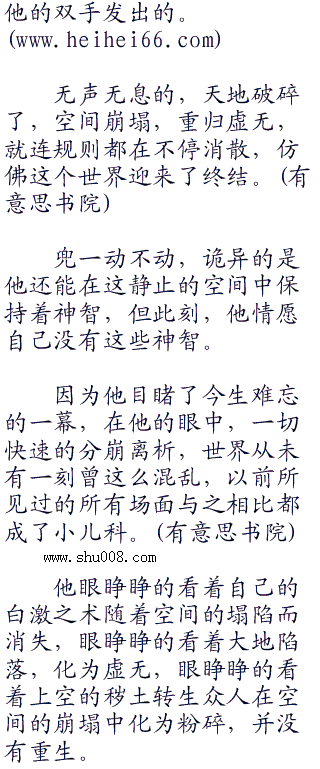 他的双手发出的。
(www.heihei66.com)
无声无息的，天地破碎
了，空间崩塌，重归虚无，
就连规则都在不停消散，仿
佛这个世界迎来了终结。(有
意思书院)
兜一动不动，诡异的是
他还能在这静止的空间中保
持着神智，但此刻，他情愿
自己没有这些神智。
因为他目睹了今生难忘
的一幕，在他的眼中，一切
快速的分崩离析，世界从未
有一刻曾这么混乱，以前所
见过的所有场面与之相比都
成了小儿科。(有意思书院)
www.shu008.com
他眼睁睁的看着自己的
白激之术随着空间的塌陷而
消失，眼睁睁的看着大地陷
落，化为虚无，眼睁睁的看
着上空的秽土转生众人在空
间的崩塌中化为粉碎，并没
有重生。